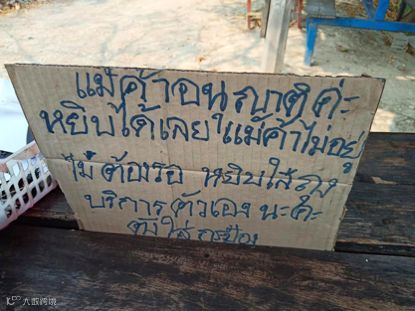 แม่ค้าอนุญาติค่ะ
หยิบได้เลย แม่ค้าไม่อยู่
ไม่ต้องรอ หยิบใส่ถุง
บริการตัวเอง นะค่ะ
ตังใส่กระป๋อง
大数跨境